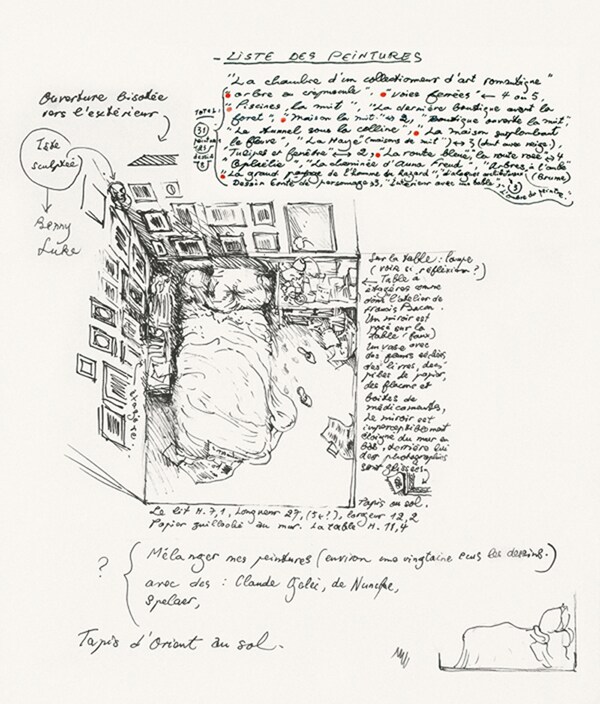 - LISTE DES PEINTURES
"La chambre d'un collectionneur d'art romantique"
"arbre au crépuscule", "Voies ferrées" ← 4 ou 5,
"Piscines, la nuit", "La dernière Boutique avant la
foret", "Maison la nuit" → 2, "Boutique ouverte la nuit"
"Le tunnel sous la colline", "La maison surplombant
le fleuve", "La Haye (maisons de nuit") → 3 (dont avec neige),
Tulipes et fenêtre → 2, "La route bleue, la route rose → 4
"Ophélie", "La cheminée d'Anna Freud", "Arbres à l'aube
"La grand passage de l'homme au hasard", (Brume)
Dessin Emile de personnage → 3, "Intérieur avec une table",
L'ombre du peintre."
TOTAL:
31
Ouverture biseautée
vers l'extérieur
Tête
sculptée
Benny
Luke
Sur la table: loupe
(voir si réflexion?)
← Table à
étagères comme
dans l'atelier de
Francis Bacon.
Un miroir est
posé sur la
table (faux)
un vase avec
des fleurs séchées,
des livres, des
piles de papier,
des flacons et
boîtes de
médicaments,
Le miroir est
imperceptiblement
éloigné du mur en
bas, derrière lui
des photographies
sont glissées.
Tapis au sol.
Le lit H. 7,1, Longueur 27, (54?), largeur 12,2
Papier guilloché au mur. La table H. 11,4
? Mélanger mes peintures (environ une vingtaine avec les dessins.)
avec des : Claude Gelée, de Nuncque,
Spelaer,
Tapis d'Orient au sol.